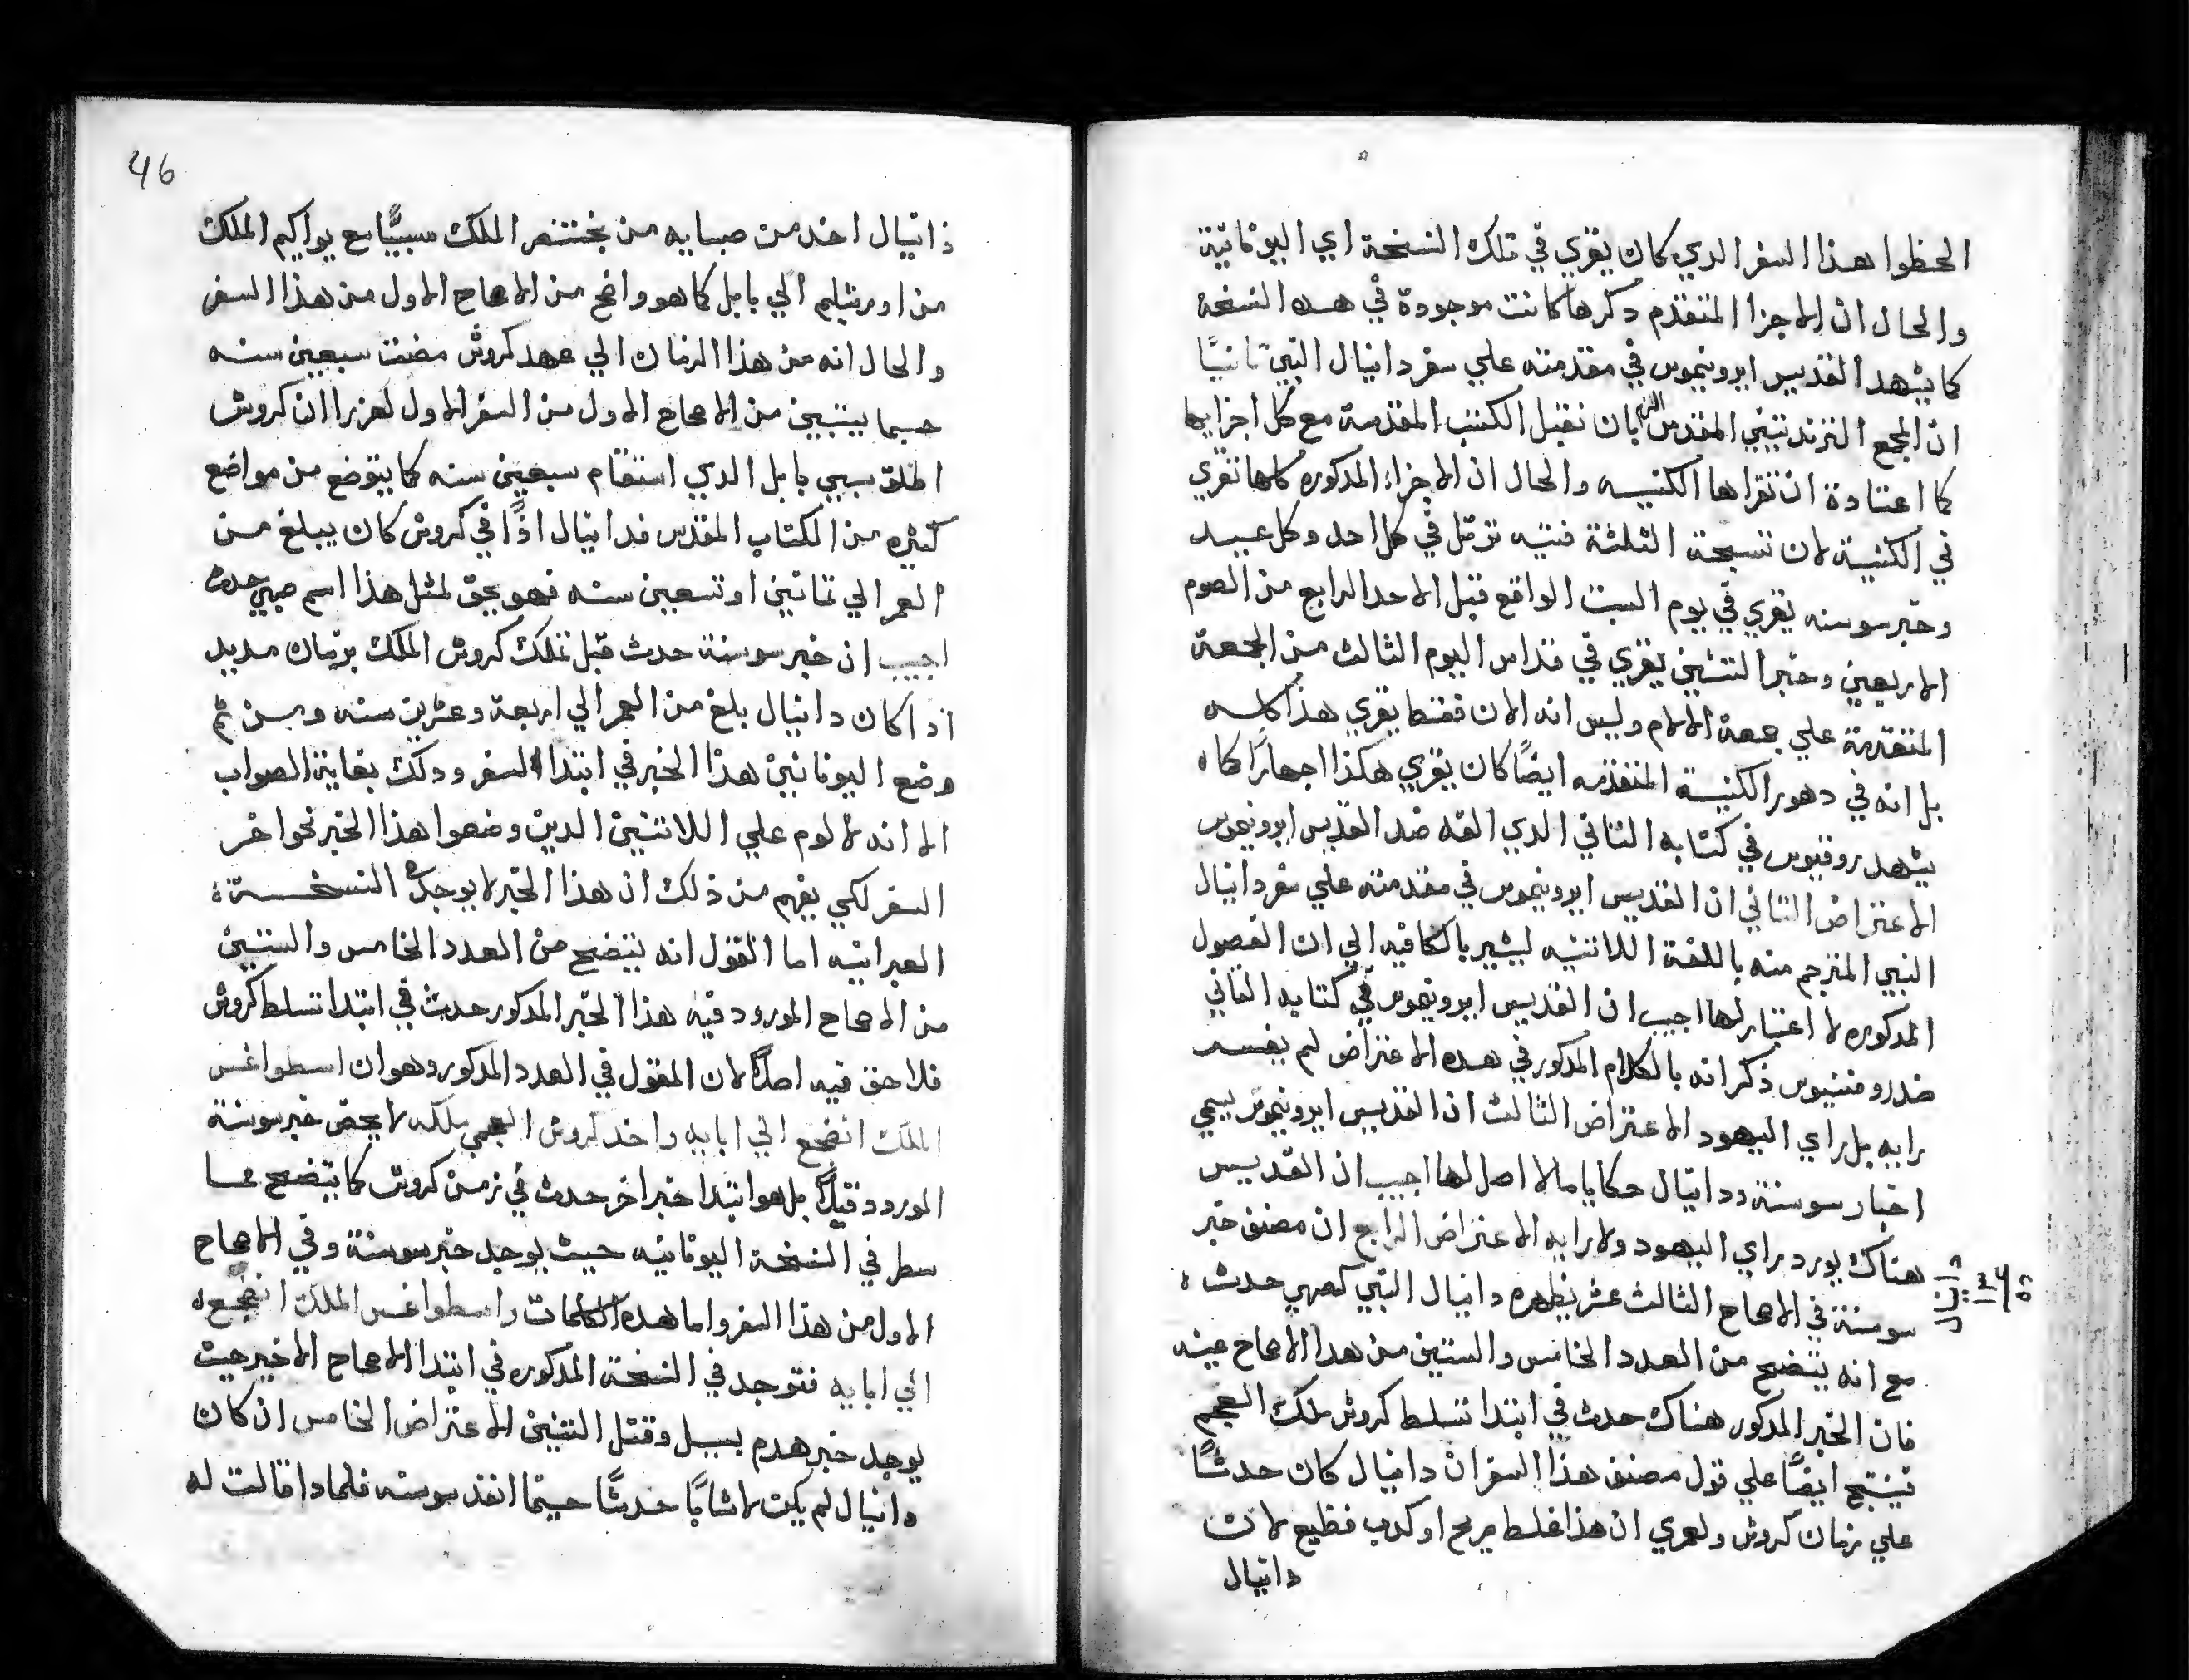 الحظوا هذا السفر الدي كان يقري في تلك النسخة اي اليونانية
والحال ان الاجزا المتقدم دكرها كانت موجودة في هده النسخة
كما يشهد القديس ايرونيموس في مقدمته علي سفر دانيال النبي ثانيًا
ان المجمع التريدنتيني المقدس الزم بان نقبل الكتب المقدسة مع كل اجزايها
كما اعتادة ان تقراها الكنيسه والحال ان الاجزاء المدكوره كلها تقري
في الكنيسة لان تسبحة الثلثة فتيه ترتل في كل احد وكل عيد
وخبر سوسنه يقري في يوم السبت الواقع قبل الاحد الرابع من الصوم
الاربعيني وخبر التنين يقري في قداس اليوم الثالث من الجمعة
المتقدمة علي جمعة الالام وليس انه الان فقط يقري هذا كله
بل انه في دهور الكنيسة المتقدمه ايضًا كان يقري هكذا اجهارًا كما
يشهد روفنيوس في كتابه الثاني الدي الفه ضد القديس ايرونيموس
الاعتراض الثاني ان القديس ايرونيموس في مقدمته علي سفر دانيال
النبي المترجم منه باللغة اللاتنيه ليشير بالكافيه الي ان الفصول
المدكوره لا اعتبار لها اجيب ان القديس ايرونيموس في كتابه الثاني
ضد روفنيوس ذكر انه بالكلام المدكور في هده الاعتراض لم يفسد
رايه بل راي اليهود الاعتراض الثالث ان القديس ايرونيموس يسمي
اخبار سوسنة ودانيال حكايا ملا اصل لها اجيب ان القديس
هناك يورد راي اليهود ولا رايه الاعتراض الرابع ان مصنف خبر
سوسنة في الاصحاح الثالث عشر يظهره دانيال النبي كصبي حدث
مع انه يتضح من العدد الخامس والستين من هدا الاصحاح عينه
فان الخبر المدكور هناك حدث في ابتدا تسلط كروش ملك العجم
فينتج ايضًا علي قول مصنف هذا السفر ان دانيال كان حدثًا
علي زمان كروش ولعمري ان هذا غلط صريح او كدب فظيع لان
دانيال
46
دانيال اخد من صبايه من بختنصر الملك سبيًا مع يواكيم الملك
من اورشليم الي بابل كما هو واضح من الاصحاح الاول من هذا السفر
والحال انه من هذا الزمان الي عهد كروش مضت سبعين سنه
حسبما يتبين من الاصحاح الاول من السفر الاول لعزرا ان كروش
اطلق سبي بابل الدي استقام سبعين سنه كما يتوضح من مواضع
كثيره من الكتاب المقدس فدانيال اذًا في كروش كان يبلغ من
العمر الي تمانين او تسعين سنه فهو يحق لمثل هذا اسم صبي حدث
اجيب ان خبر سوسنة حدث قبل تملك كروش الملك بزمان مديد
اد اكان دانيال بلغ من العمر الي اربعة وعشرين سنه ومن ثم
وضع اليونانيين هذا الخبر في ابتدا السفر ودلك بغاية الصواب
الا انه لا لوم علي اللاتنيين الدين وضعوا هذا الخبر نحو اخر
السفر لكي يفهم من ذلك ان هذا الخبر لا يوجد في النسخة
العبرانيه اما القول انه يتضح من العدد الخامس والستين
من الاصحاح المورود فيه هذا الخبر المدكور حدث في ابتدا تسلط كروش
فلا حق فيه اصلًا لان المقول في العدد المدكور وهو ان اسطواغس
الملك انضجع الي ابايه واخد كروش العجمي ملكه لا يخص خبر سوسنة
المورود قبلًا بل هو ابتدا خبر اخر حدث في زمن كروش كما يتضح مما
سطر في النسخة اليونانيه حيث يوجد خبر سوسنة وفي الاصحاح
الاول من هذا السفر واما هده الكلمات واسطواغس الملك انضجع
الي ابايه فتوجد في النسخة المدكوره في ابتدا الاصحاح الاخير حيث
يوجد خبر هدم ببيل وقتل التنين الاعتراض الخامس ان كان
دانيال لم يكن لا شابًا حدثًا حينما انقد سوسنه فلمادا قالت له